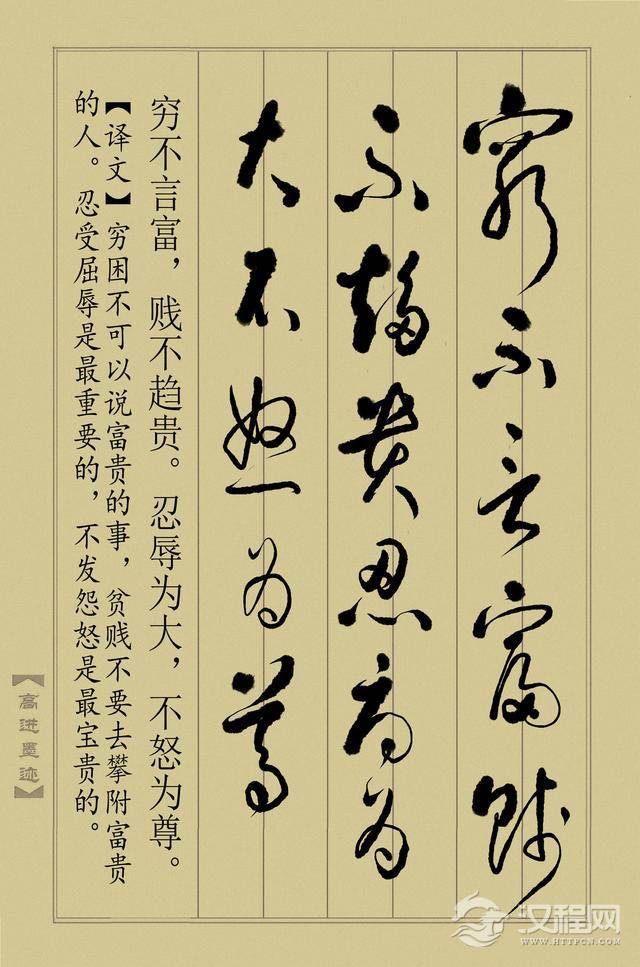 穷不言富贱
不趋贵忍辱为
大不怒为尊
穷不言富，贱不趋贵。忍辱为大，不怒为尊。
【译文】穷困不可以说富贵的事，贫贱不要去攀附富贵
的人。忍受屈辱是最重要的，不发怨怒是最宝贵的。
【高进墨迹】
汉程网
WWW.HTTPCN.COM